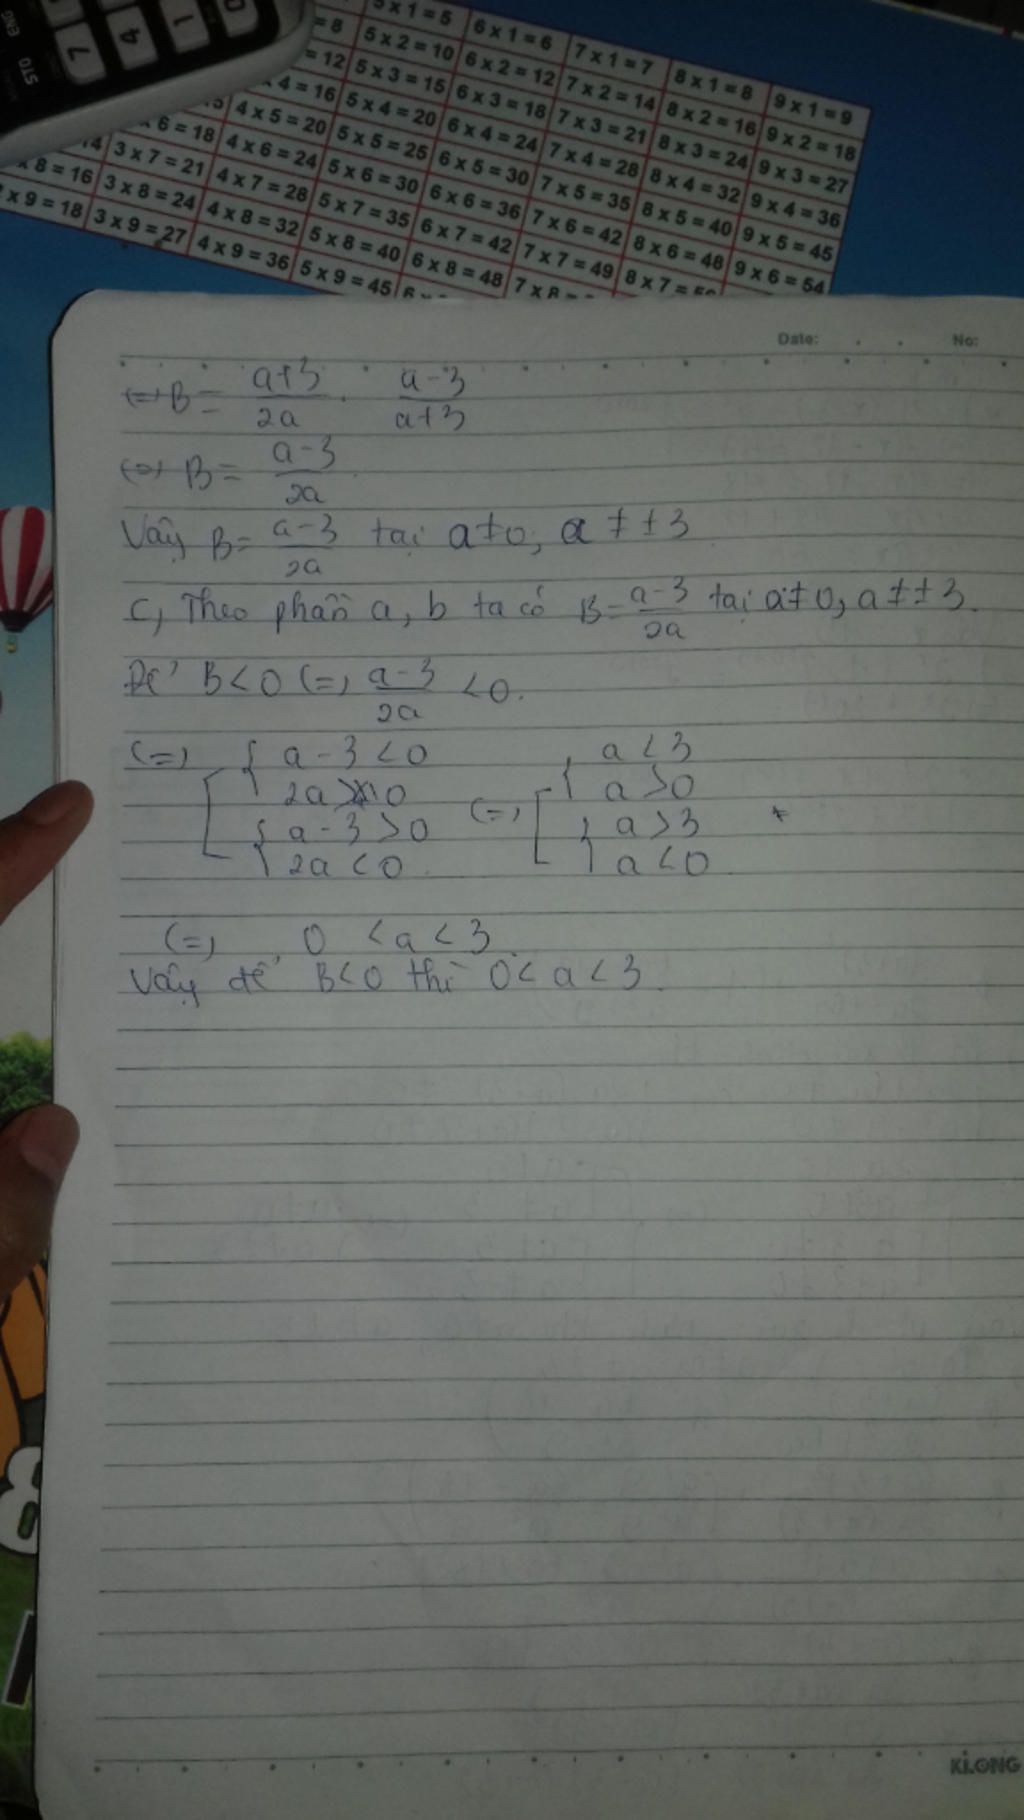 0 1 4 7
ENG STO
5 x 1 = 5 6 x 1 = 6 7 x 1 = 7 8 x 1 = 8 9 x 1 = 9
= 8 5 x 2 = 10 6 x 2 = 12 7 x 2 = 14 8 x 2 = 16 9 x 2 = 18
= 12 5 x 3 = 15 6 x 3 = 18 7 x 3 = 21 8 x 3 = 24 9 x 3 = 27
4 = 16 5 x 4 = 20 6 x 4 = 24 7 x 4 = 28 8 x 4 = 32 9 x 4 = 36
4 x 5 = 20 5 x 5 = 25 6 x 5 = 30 7 x 5 = 35 8 x 5 = 40 9 x 5 = 45
x 6 = 18 4 x 6 = 24 5 x 6 = 30 6 x 6 = 36 7 x 6 = 42 8 x 6 = 48 9 x 6 = 54
14 3 x 7 = 21 4 x 7 = 28 5 x 7 = 35 6 x 7 = 42 7 x 7 = 49 8 x 7 =
x 8 = 16 3 x 8 = 24 4 x 8 = 32 5 x 8 = 40 6 x 8 = 48 7 x 8 =
x 9 = 18 3 x 9 = 27 4 x 9 = 36 5 x 9 = 45
Date: No:
(=) B = a+3/2a . a-3/a+3
(=) B = a-3/2a
Vậy B = a-3/2a tại a≠0; a ≠ ±3
C, Theo phần a, b ta có B = a-3/2a tại a≠0, a ≠ ±3.
Để B<0 (=) a-3/2a <0.
(=) [ { a-3<0 a<3
2a>0 (=) a>0
{ a-3>0 a>3
2a<0 a<0
(=) 0 <a<3
Vậy để B<0 thì 0<a<3.
8
KLONG